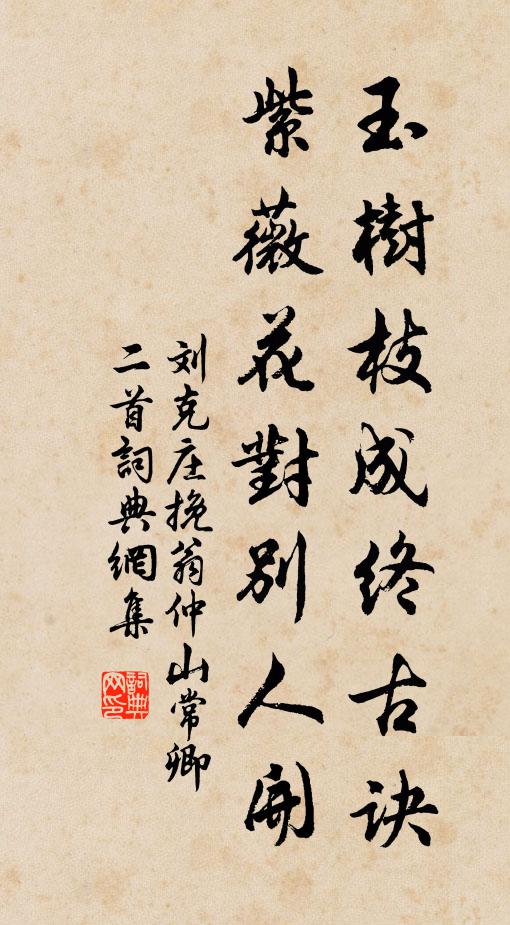 玉樹枝成終古訣
紫薇花對別人開
刘克庄挽翁仲山常卿
二首詞典網集
詞典网印